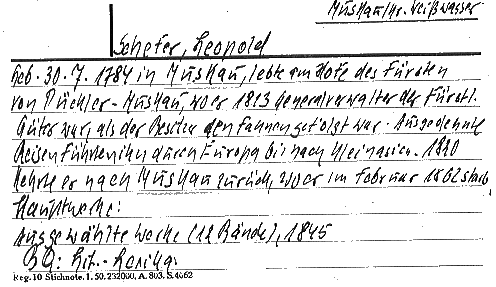 Muskau/Kr. Weißwasser
Schefer, Leopold
Geb. 30.7.1784 in Muskau, lebte am Hofe des Fürsten
von Pückler-Muskau, wo er 1813 Generalverwalter der Fürstl.
Güter war, als der Besitzer den Fahnen gefolgt war. Ausgedehnte
Reisen führten ihn durch Europa bis nach Kleinasien. 1820
kehrte er nach Muskau zurück, wo er im Februar 1862 starb.
Hauptwerke:
Ausgewählte Werke (12 Bände), 1845
BQ: Lit.-Lexika.
Reg. 10 Stichnote. I. 50. 232000, A. 803. S. 4062